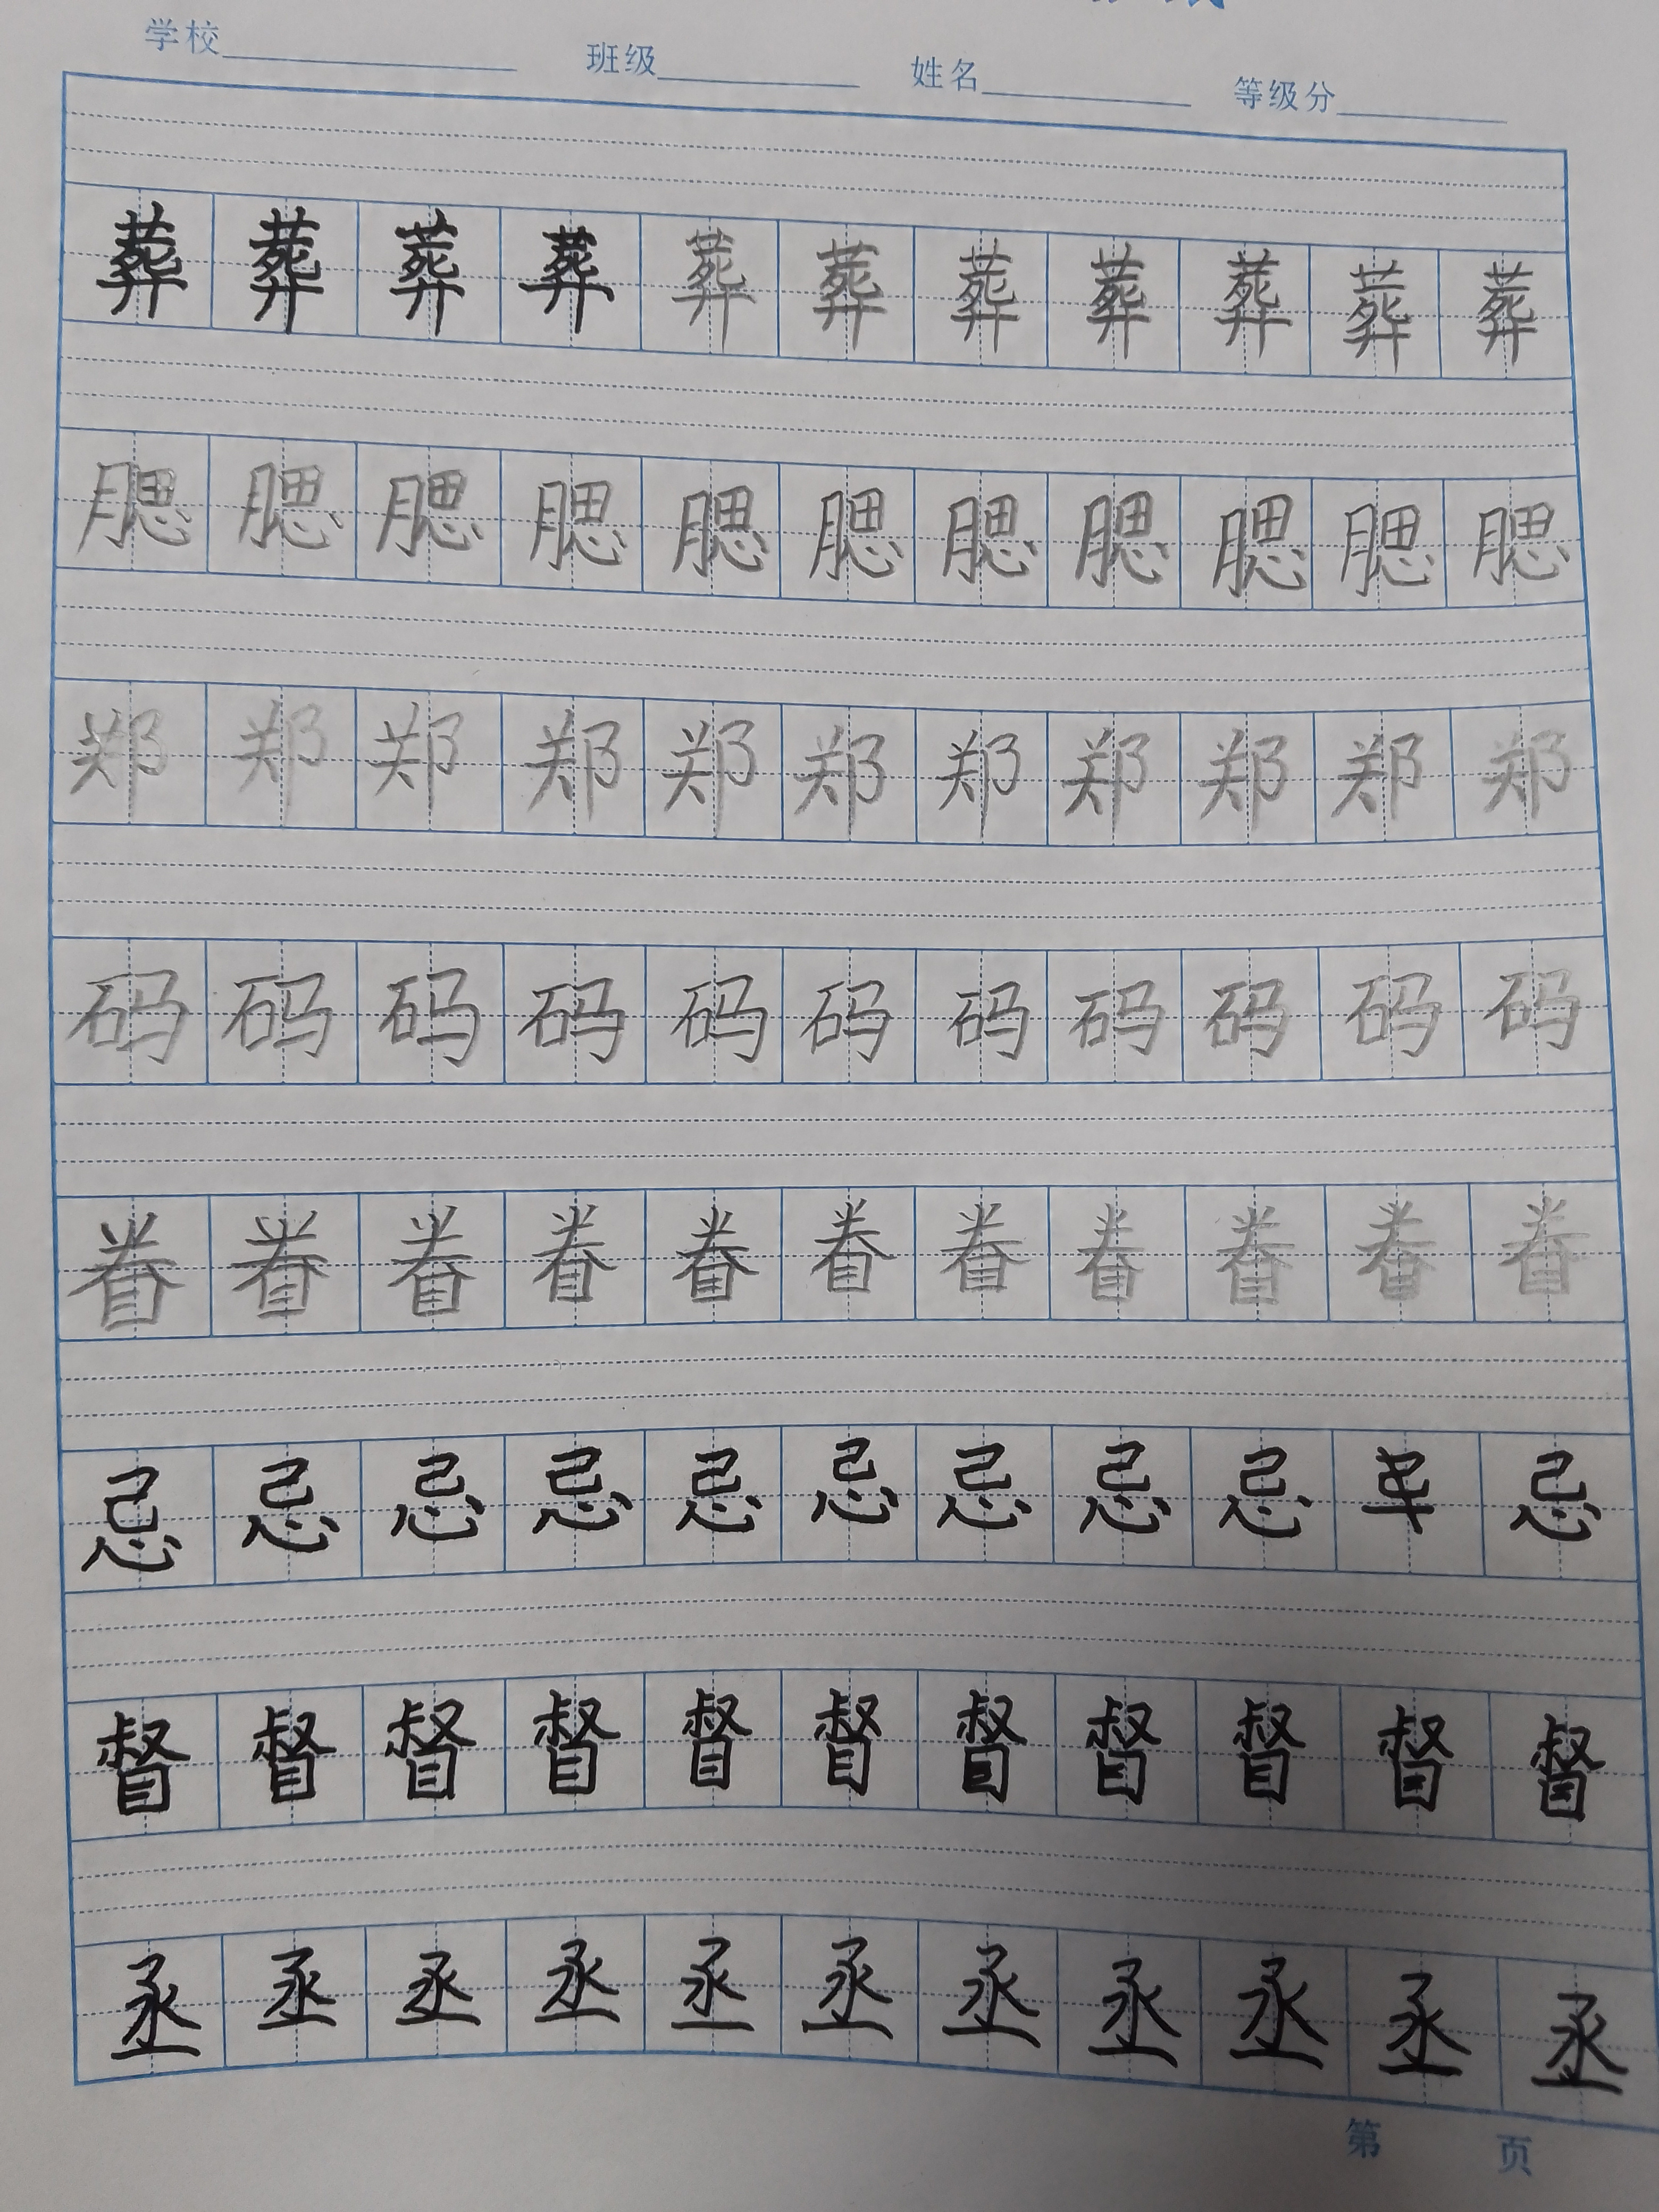 学校 班级 姓名 等级分
葬葬葬葬葬葬葬葬葬葬葬
腮腮腮腮腮腮腮腮腮腮腮
郑郑郑郑郑郑郑郑郑郑郑
码码码码码码码码码码码
眷眷眷眷眷眷眷眷眷眷眷
忌忌忌忌忌忌忌忌忌忌
督督督督督督督督督督督
丞丞丞丞丞丞丞丞丞丞丞
第 页